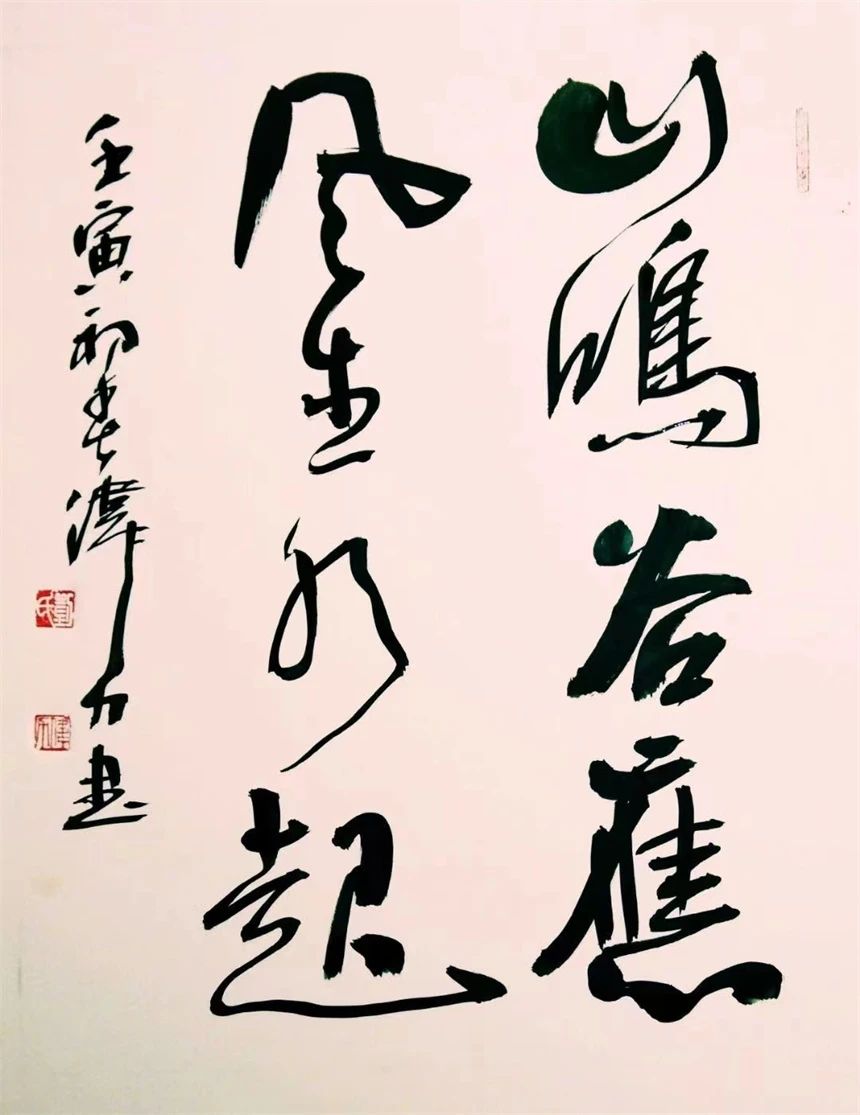 山鳴谷應
風生水起
壬寅初春偉力書